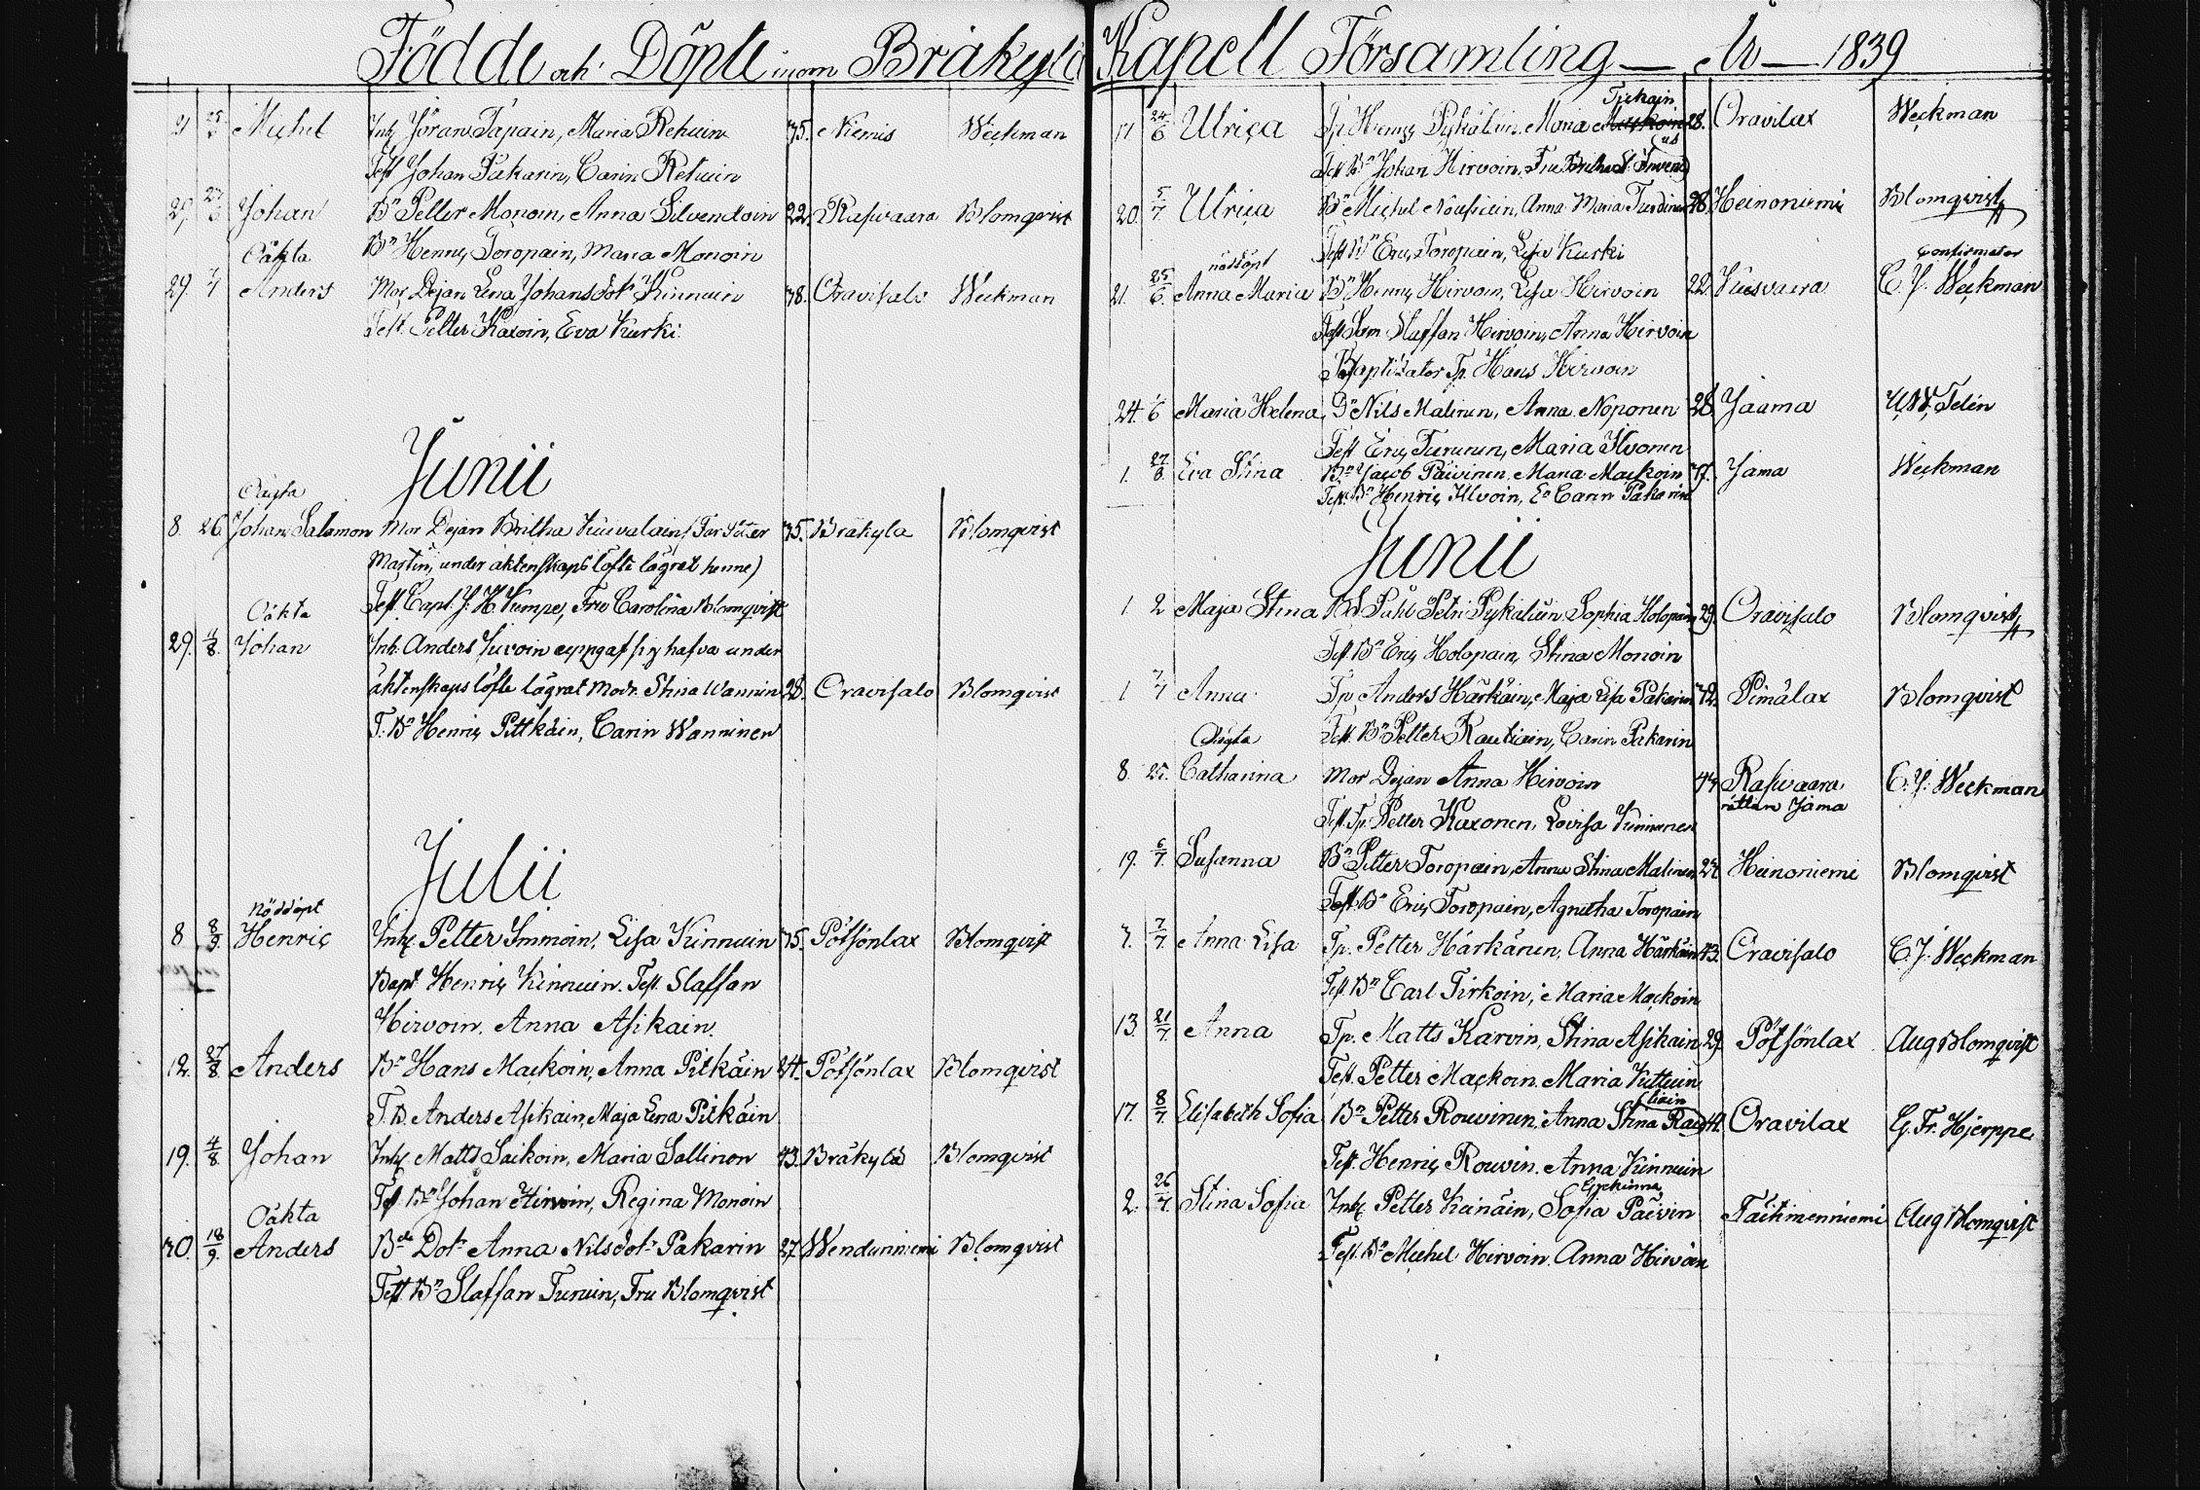 Födde och Döpte inom Bräkylä Kapell Församling — År — 1839
21 25/5 Michel Inh. Jöran Tapain, Maria Rehuin 35. Niemis Weckman
Test Johan Pakarin, Carin Rehuin
27. Johan Bn Petter Monoin, Anna Silvendoin 22. Raswaara Blomqvist
Oäkta Bn Henric Toropain, Maria Monoin
29. Anders Mor Dejan Lena Johansdotr Kinnuin 38. Oravisalo Weckman
Test. Petter Kaxoin, Eva Kurki
Junii
Oägta
8. 26. Johan Salomon Mor Dejan Britha Kuivalain, (Far Säter 35. Bräkyla Blomqvist
Martin, under äktenskaps löfte lägrat henne)
Oäkta Test. Capt. J. H. Fumpe, Fru Carolina Blomqvist
29. 4/8. Johan Inh. Anders hafva under
äktenskaps löfte lägrat Modr. Stina Wannin 28. Oravisalo Blomqvist
T. Bn Henric Pitkäin, Carin Wanninen
Julii
Nöddöpt
8 8/9. Henric Inh. Petter Immoin, Lisa Kinnuin 35. Pötsönlax Blomqvist
Bapt Henric Kinnuin. Test. Staffan
Hirvoin. Anna Asikain.
12. 27/8. Anders Bn Hans Mackoin, Anna Pitkäin 24. Pötsönlax Blomqvist
T. B. Anders Asikain, Maja Lena Pitkäin
19. 4/8. Johan Inh. Matts Saikoin, Maria Sallinon 43. Bräkylä Blomqvist
Test. Bn Johan Hirvoin, Regina Monoin
Oäkta
30. 18/9. Anders Bde Dotr Anna Nilsdotr Pakarin 27. Wenduniniemi Blomqvist
Test Bn Staffan Turuin, Fru Blomqvist
Tickain
17 24/6 Ulrica Tp. Henric Pykäläin. Maria 28. Oravilax Weckman
Test Bn Johan Hirvoin. Fru Britha
20. 5/7 Ulrica Bn Michel Nousiain, Anna Maria Turdinen 28. Heinoniemi Blomqvist
nöddöpt Test Bn Eric Toropain, Lisa Kurki confirmator
21. 25/6. Anna Maria Bn Henric Hirvoin, Lisa Hirvoin 22. C. J. Weckman
Test Staffan Hirvoin, Anna Hirvoin
Baptisator Tp. Hans Hirvoin
24. 1/6 Maria Helena Dn Nils Malinen, Anna Noponen 28. Jaama U. W. Telén
Test Eric Turunen, Maria Ilvonen
1. 27/6. Eva Stina Bn Jacob Päivinen, Maria Mackoin 37. Jama Weckman
Test. Bn Henric Ilvoin, Carin Pakarin
Junii
1 2 Maja Stina Påhl Petri Pykäläin Sophia Holopain 29. Oravisalo Blomqvist
Test Bn Eric Holopain, Stina Monoin
1 7/7 Anna Tp. Anders Härkäin, Maja Lisa Pakarin 42. Pimälax Blomqvist
Oägta Test. Bn Petter Rautiain, Carin Pakarin
8. 25. Catharina Mor Dejan Anna Hirvoin 44 Raswaara C. J. Weckman
rättare Jama
Test. Tp. Petter Kaxonen, Lovisa Kinnunen
19. 6/7. Susanna Bn Petter Toropain, Anna Stina Malinen 24. Heinoniemi Blomqvist
Test. Bn Eric Toropain, Agnetha Toropain
7. 7/7. Anna Lisa Tp. Petter Härkänen, Anna Härkäin 43. Oravisalo C. J. Weckman
Test. Bn Carl Tirkoin, Maria Mackoin
13. 21/7. Anna Tp. Matts Karvin, Stina Asikain 29. Pötsönlax Aug Blomqvist
Test. Petter Mackoin. Maria Kuttuin
tiain
17. 8/7 Elisabeth Sofia Bn Petter Rouvinen, Anna Stina Rau 41. Oravilax G. Fr. Hjerppe
Test. Henric Rouvin. Anna Kinnuin
2. 26/7. Stina Sofia Inh. Petter Keinäin, Sofia Päevin Täikmenniemi Aug Blomqvist
Test. Bn Michel Hirvoin. Anna Hirvoin